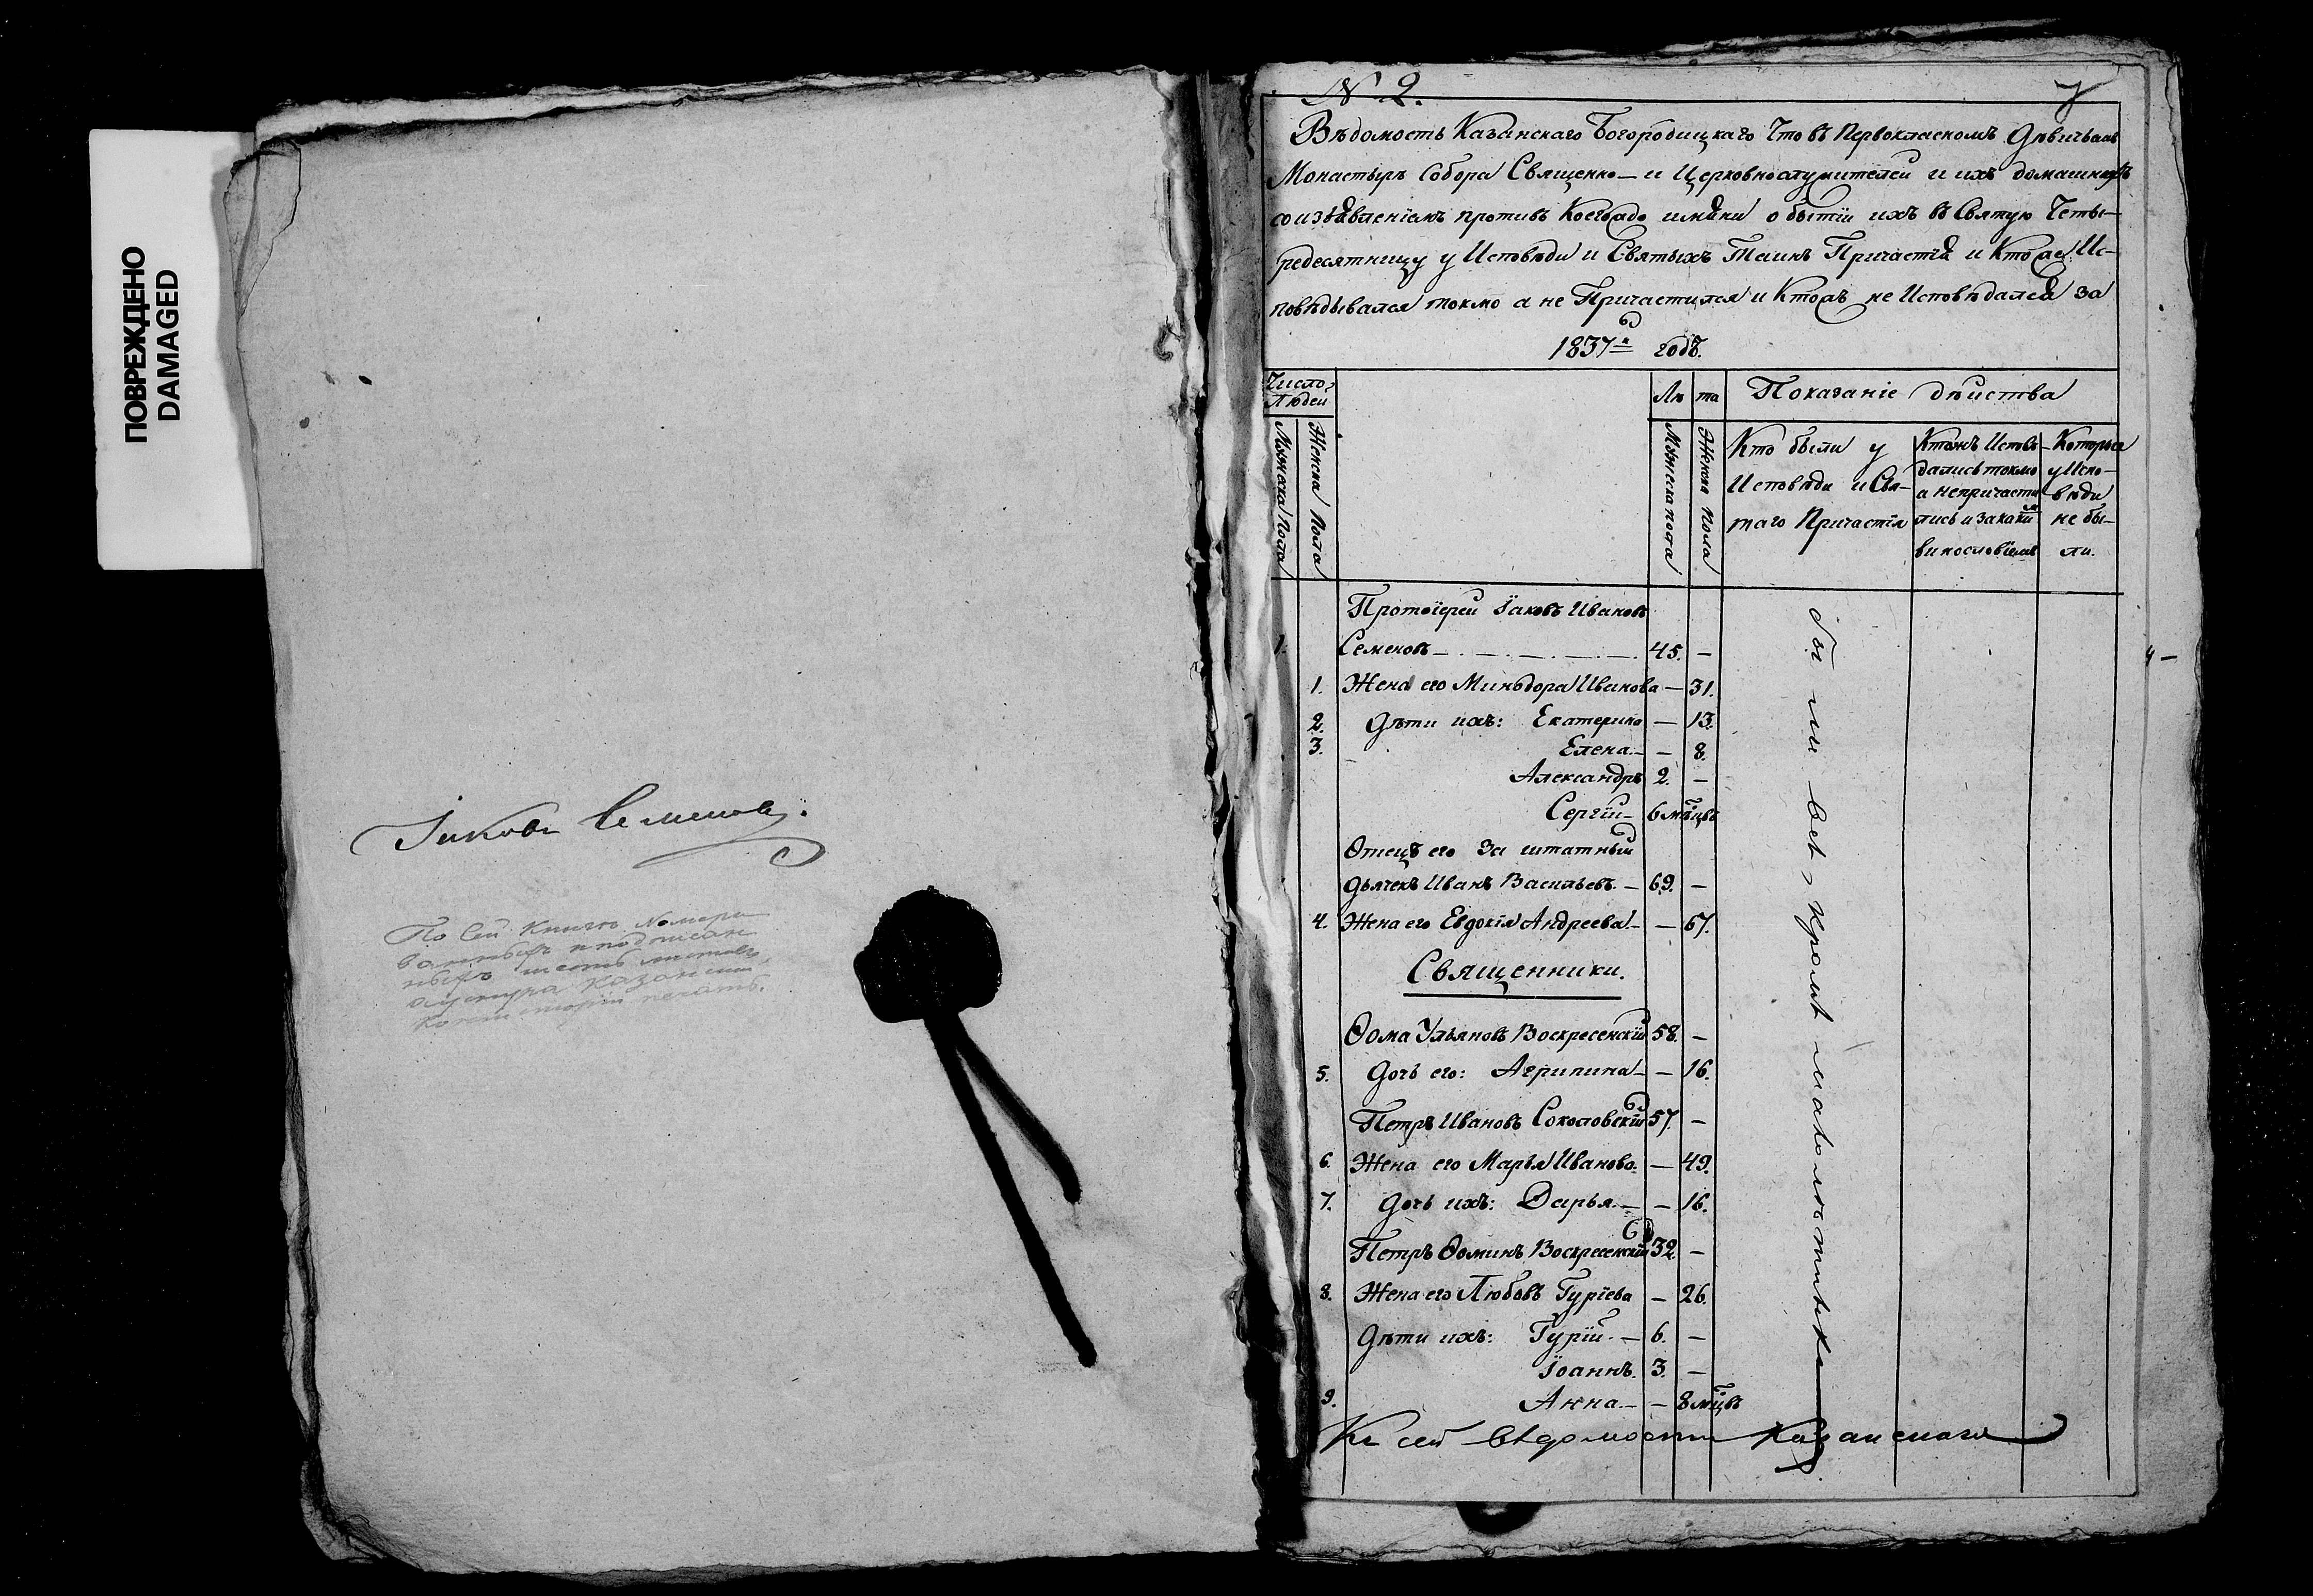 ПОВРЕЖДЕНО
DAMAGED
Іаковъ Семеновъ.
По сей книгѣ номеро-
ванныхъ и подписан
ныхъ шесть листовъ,
у шнура Казанской
Консисторіи печать.
N 2.
Вѣдомость Казанскаго Богородицкаго что въ Первокласномъ Дѣвичьемъ
Монастырѣ Собора Священно- и Церковнослужителей и ихъ домашнихъ
со изъявленіемъ противъ коегождо имяни о бытіи ихъ въ Святую Четы-
редесятницу у Исповѣди и Святыхъ Таинъ Причастія и кто же Ис-
повѣдывался токмо а не Причастился и Ктожъ не Исповѣдался за
1837й годъ.
Число Людей
Лѣ та
Показаніе дѣйства
Мужеска Пола
Женска Пола
Мужеска пола
Женска пола
Кто были у
Исповѣди и Свя-
таго Причастія
Ктожъ Исповѣ-
дались токмо
а непричасти
лись и закаки
винословіемъ
Которые
у Испо-
вѣди
не бы-
ли.
Протоіерей Іаковъ Ивановъ
1. Семеновъ 45. -
1. Жена его Минодора Иванова - 31.
2. Дѣти ихъ: Екатерина - 13.
3. Елена. - 8.
Александръ 2. -
Сергій 6 мѣцвъ
Отецъ его За штатный
дьячекъ Иванъ Васильевъ. - 69. -
4. Жена его Евдокія Андреева. - 67.
Священники.
Ѳома Ульяновъ Воскресенскій 58. -
5. Дочь его: Агрипина - 16.
Петръ Ивановъ Соколовскій 57. -
6. Жена его Марья Иванова. - 49.
7. Дочь ихъ: Дарья. - 16.
Петръ Ѳоминъ Воскресенскій 32. -
8. Жена его Любовь Гурieва - 26.
Дѣти ихъ: Гурій. - 6. -
Іоаннъ. 3. -
9. Анна. - 8 мѣцвъ
были всѣ, кромѣ малолѣтнихъ
Къ сей вѣдомости Казанскаго